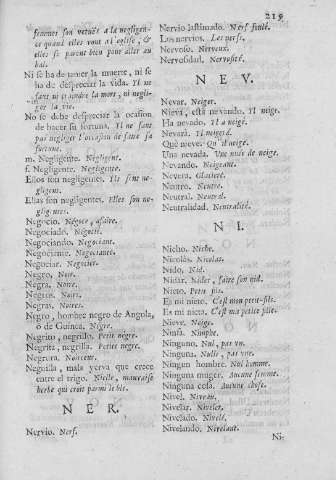 219
femmes son vetuës a la negligen-
ce quand elles vont al'eglise, &
elles se parent bien pour aller au
bal.
Ni se ha de temer la muerte, ni se
ha de despreciar la vida. Il ne
faut ni craindre la mort, ni negli-
ger la vie.
No se debe despreciar la ocasion
de hacer su fortuna. Il ne faut
pas negliger l'occasion de faire sa
fortune.
m. Negligente. Négligent.
f. Negligente. Négligente.
Ellos son negligentes. Ils sont ne-
gligens.
Ellas son negligentes. Elles son ne-
gligentes.
Negocio. Négoce, afaire.
Negociado. Négocié.
Negociando. Négociant.
Negociante. Négociant.
Negociar. Négocier.
Negro. Noir.
Negra. Noire.
Negros. Noirs.
Negras. Noires.
Negro, hombre negro de Angola,
ò de Guinea. Négre.
Negrito, negrillo. Petit négre.
Negrita, negrilla. Petite négre.
Negrura. Noirceur.
Neguilla, mala yerva que crece
entre el trigo. Nielle, mauvaise
herbe qui croit parmi le blé.
N E R.
Nervio. Nerf.
Nervio lastimado. Nerf foulé.
Los nervios. Les nerfs.
Nervoso. Nerveux.
Nervosidad. Nervosité.
N E V.
Nevar. Neiger.
Nieva, està nevando. Il neige.
Ha nevado. Il a neigé.
Nevarà. Il neigera.
Que nieve. Qu'il neige.
Una nevada. Une nuée de neige.
Nevando. Neigeant.
Nevera. Glaciere.
Neutro. Neutre.
Neutral. Neutral.
Neutralidad. Neutralité.
N I.
Nicho. Niche.
Nicolàs. Nicolas.
Nido. Nid.
Nidar. Nider, faire son nid.
Nieto. Petit fils.
Es mi nieto. C'est mon petit-fils.
Es mi nieta. C'est ma petite fille.
Nieve. Neige.
Ninfa. Nimphe.
Ninguno. Nul, pas un.
Ninguna. Nulle, pas une.
Ningun hombre. Nul homme.
Ninguna muger. Aucune femme.
Ninguna cosa. Aucune chose.
Nivel. Niveau.
Nivelar. Niveler.
Nivelado. Nivelé.
Nivelando. Nivelant.
Ni-